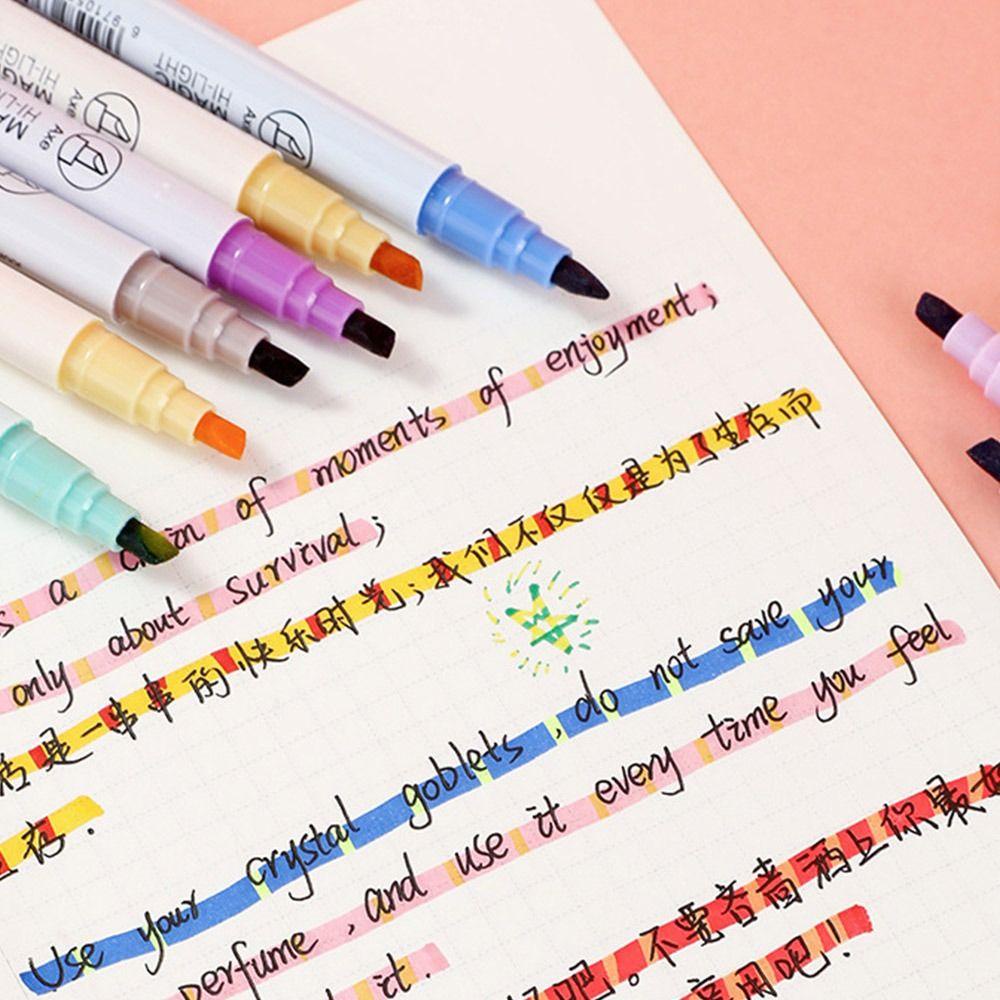 6 97105
MAGIC
HI-LIGHT
Axe
MAGIC
HI-LIGHT
Axe
MA
HI-LI
Axe
s a chain of moments of enjoyment;
only about survival;
活是一串串的快乐时光;我们不仅仅是为了生存而
存.
Use your crystal goblets, do not save your
perfume, and use it every time you feel
it.
吧。不要吝啬洒上你最好
享用吧!